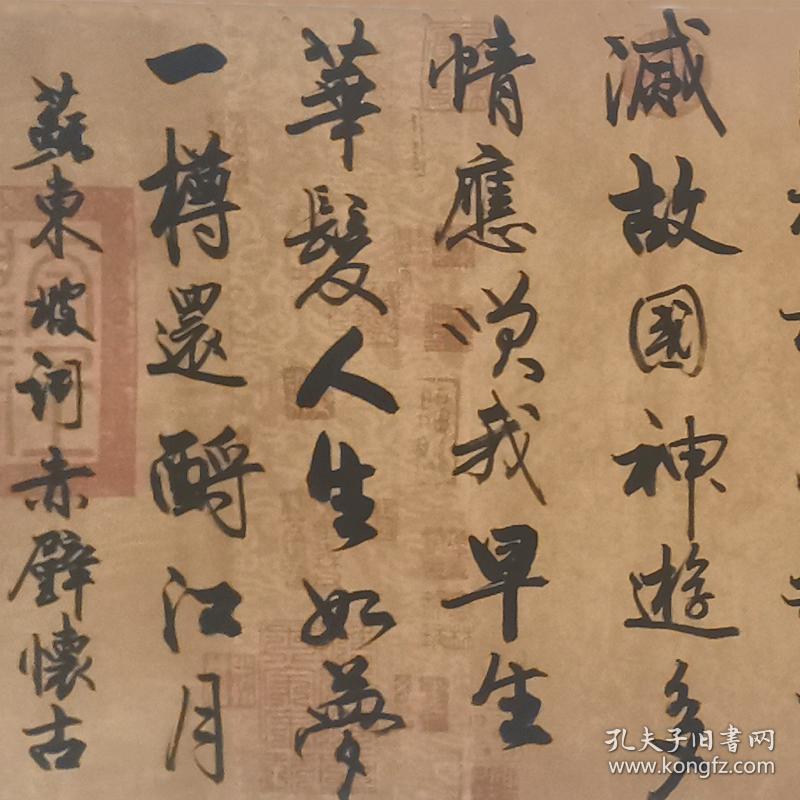 滅故國神遊多
情應嘆我早生
華髮人生如夢
一樽還酹江月
蘇東坡詞赤壁懷古
孔夫子旧書网
www.kongfz.com